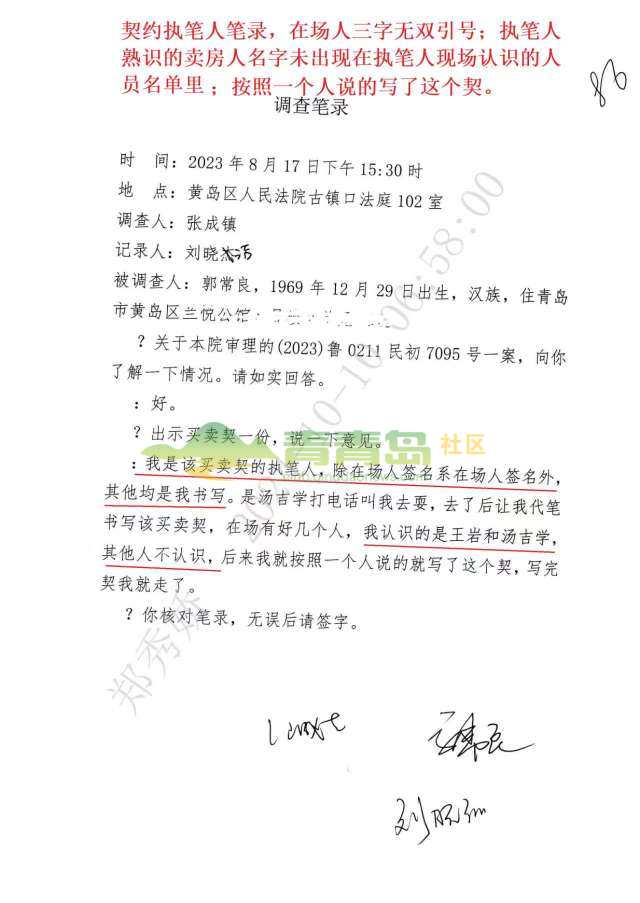 契约执笔人笔录，在场人三字无双引号；执笔人
熟识的卖房人名字未出现在执笔人现场认识的人
员名单里；按照一个人说的写了这个契。
86
调查笔录
时 间：2023年8月17日下午15:30时
地 点：黄岛区人民法院古镇口法庭102室
调查人：张成镇
记录人：刘晓洁
被调查人：郭常良，1969年12月29日出生，汉族，住青岛
市黄岛区兰悦公馆
？关于本院审理的(2023)鲁0211民初7095号一案，向你
了解一下情况。请如实回答。
：好。
？出示买卖契一份，说一下意见。
：我是该买卖契的执笔人，除在场人签名系在场人签名外，
其他均是我书写。是汤吉学打电话叫我去耍，去了后让我代笔
书写该买卖契，在场有好几个人，我认识的是王岩和汤吉学，
其他人不认识，后来我就按照一个人说的就写了这个契，写完
契我就走了。
？你核对笔录，无误后请签字。
青青岛社区
郑秀娇